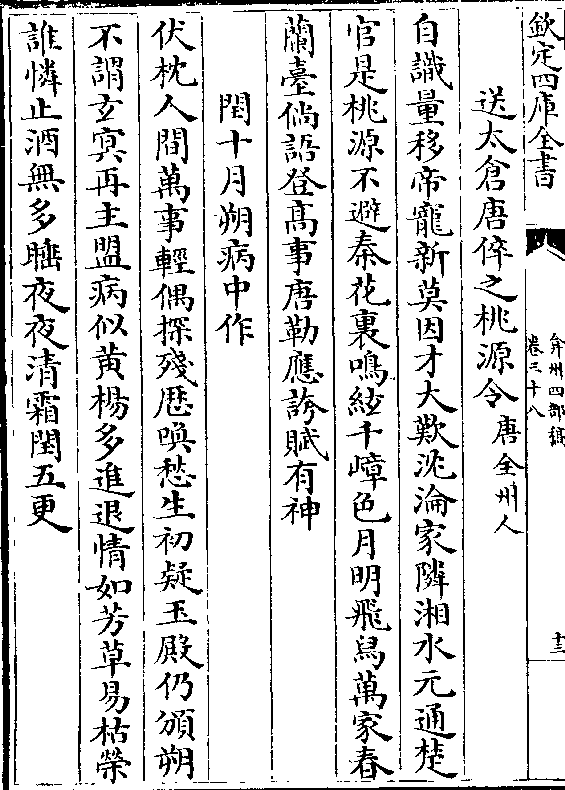 欽定四庫全書
弇州四部稿
卷三十八
十三
送太倉唐倅之桃源令唐全州人
自識量移帝寵新莫因才大歎沈淪家隣湘水元通楚
官是桃源不避秦花裏鳴絃千嶂色月明飛舃萬家春
蘭臺倘語登高事唐勒應誇賦有神
閏十月朔病中作
伏枕人間萬事輕偶探殘厯喚愁生初疑玉殿仍頒朔
不謂玄冥再主盟病似黄楊多進退情如芳草易枯榮
誰憐止酒無多睡夜夜清霜閏五更